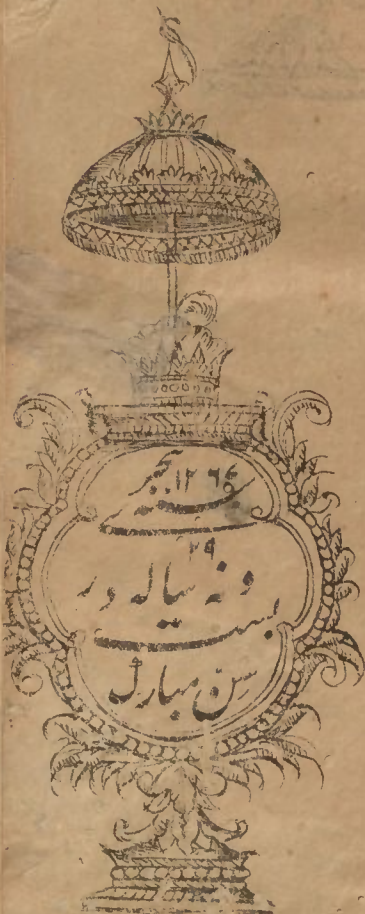 سنه هجری
۲۹
بست و نه ساله در
سن مبارک